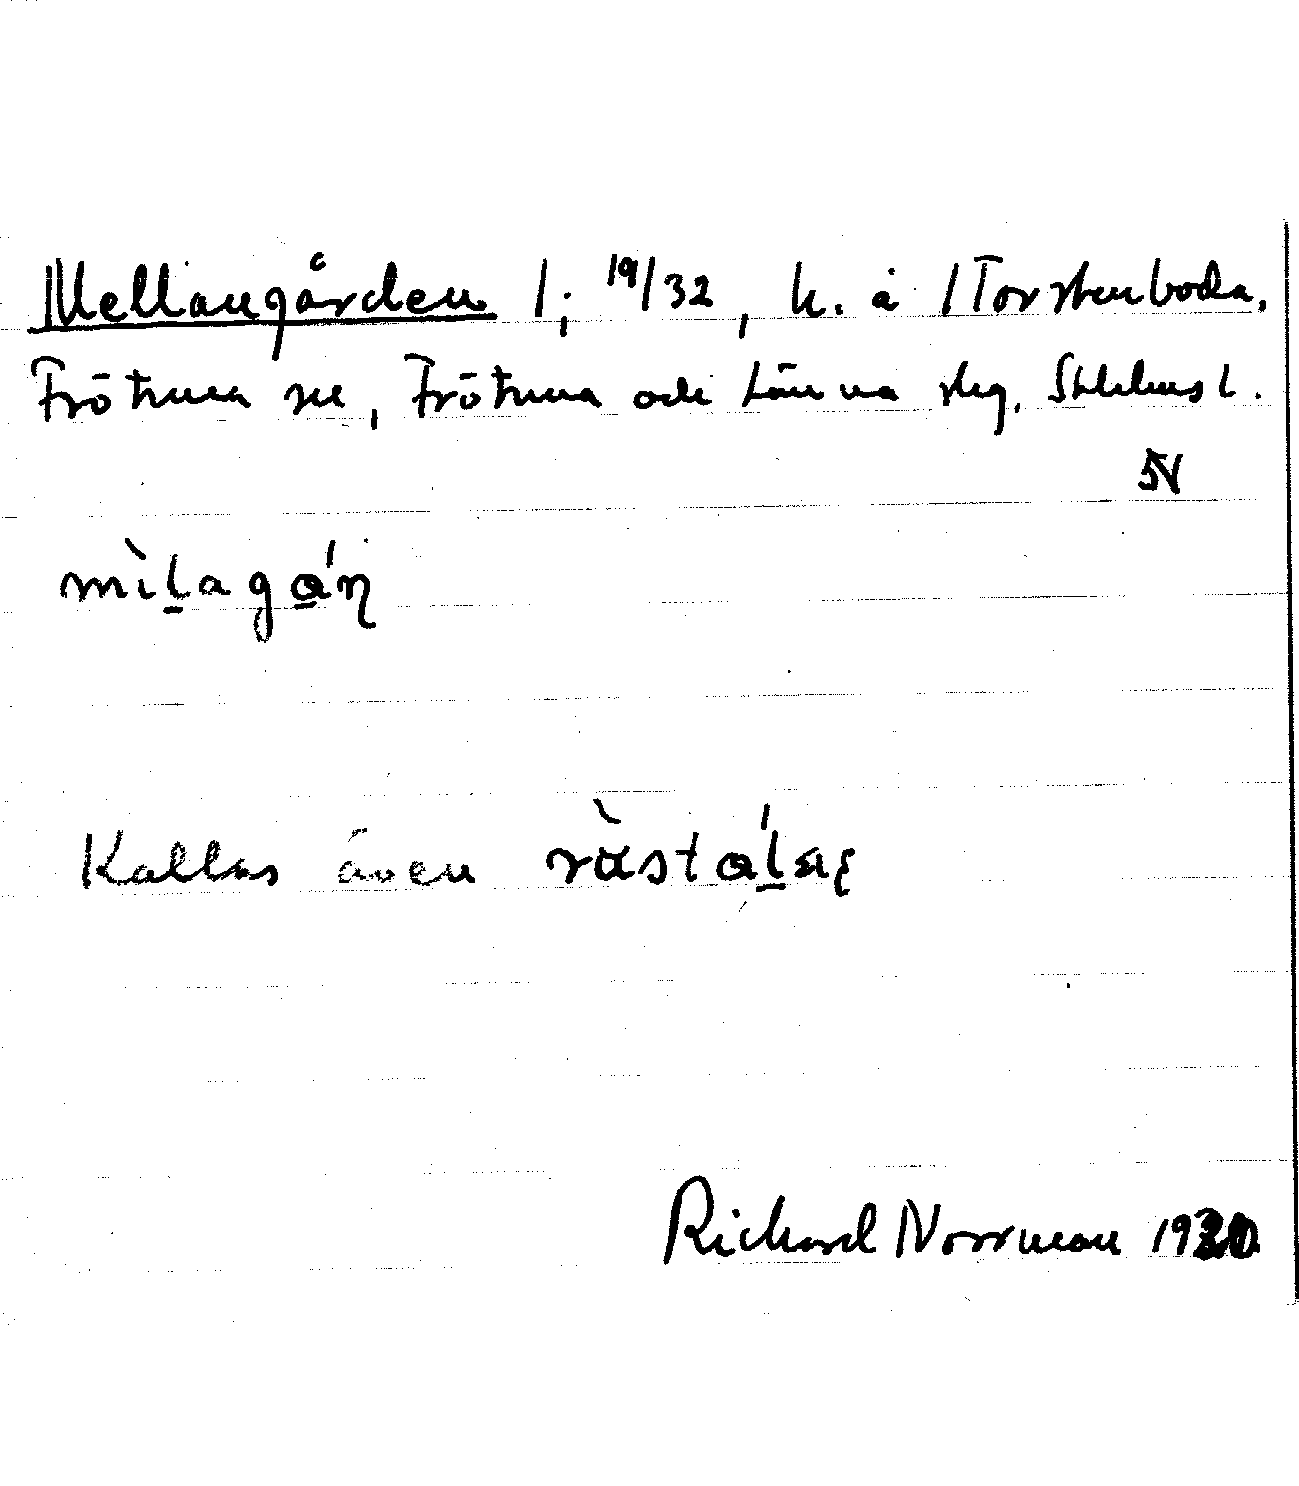 Mellangården 1; 19/32, h. å 1 Torstenboda,
Frötuna sn, Frötuna och Länna slg, Sthlms l.
5N
mìl̠agά̠ɳ
Kallas även
Richard Norrman 1930